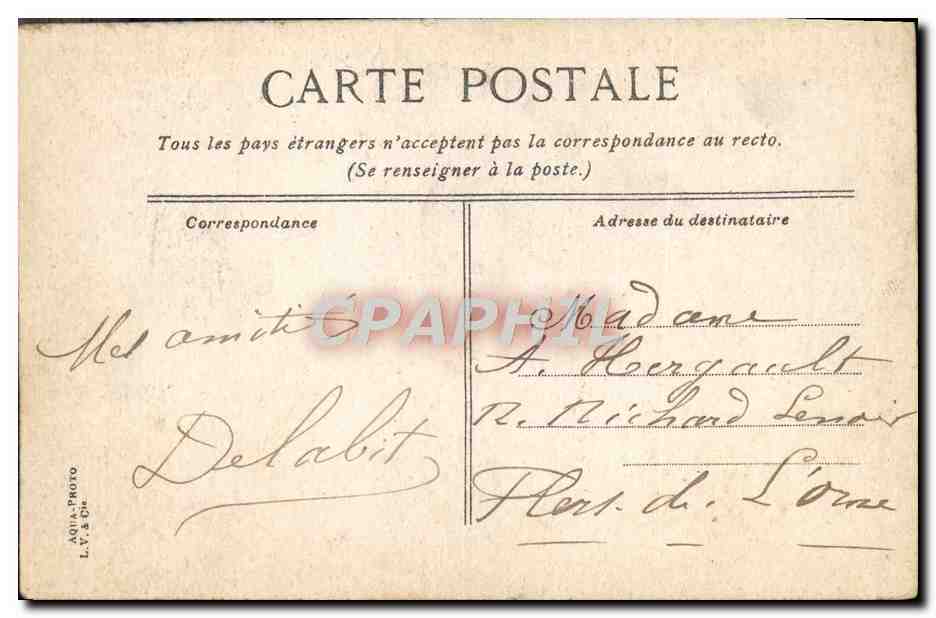 CARTE POSTALE
Tous les pays étrangers n'acceptent pas la correspondance au recto.
(Se renseigner à la poste.)
Correspondance
Mes amitiés
Delabit
AQUA-PHOTO
L. V. & Cie
Adresse du destinataire
Madame
A. Hergault
R. Richard Lenoir
Flers-de-L'orne
CPAPHIL